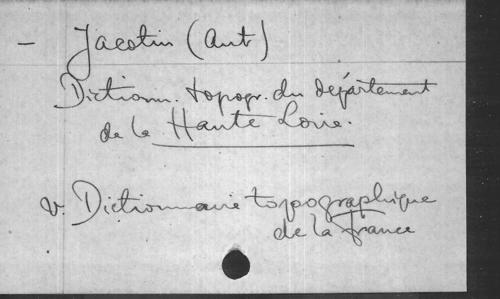 – Jacotin (Ant)
Dictionn. topogr. du département
de la Haute Loire.
v. Dictionnaire topographique
de la France